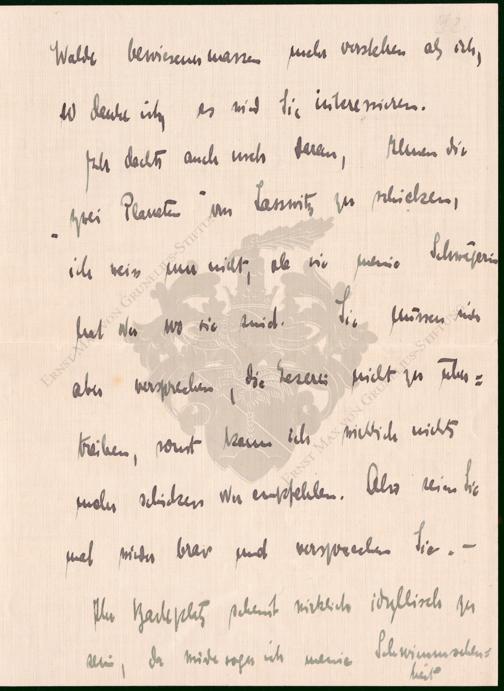 Walde bewiesenermassen mehr verstehen als ich,
so denke ich, es wird Sie interessieren.
Ich dachte auch noch daran, Ihnen die
"zwei Planeten" von Lasswitz zu schicken,
ich weiss nur nicht, ob sie meine Schwägerin
hat oder wo sie sind. Sie müssen mir
aber versprechen, die Leserei nicht zu über=
treiben, sonst kann ich wirklich nichts
mehr schicken oder empfehlen. Also seien Sie
mal wieder brav und versprechen Sie. –
Ihr Badeplatz scheint wirklich idyllisch zu
sein, da würde sogar ich meine Schwimmscheu=
heit
ERNST MAX VON GRUNELIUS-STIFTUNG
ERNST MAX VON GRUNELIUS-STIFTUNG